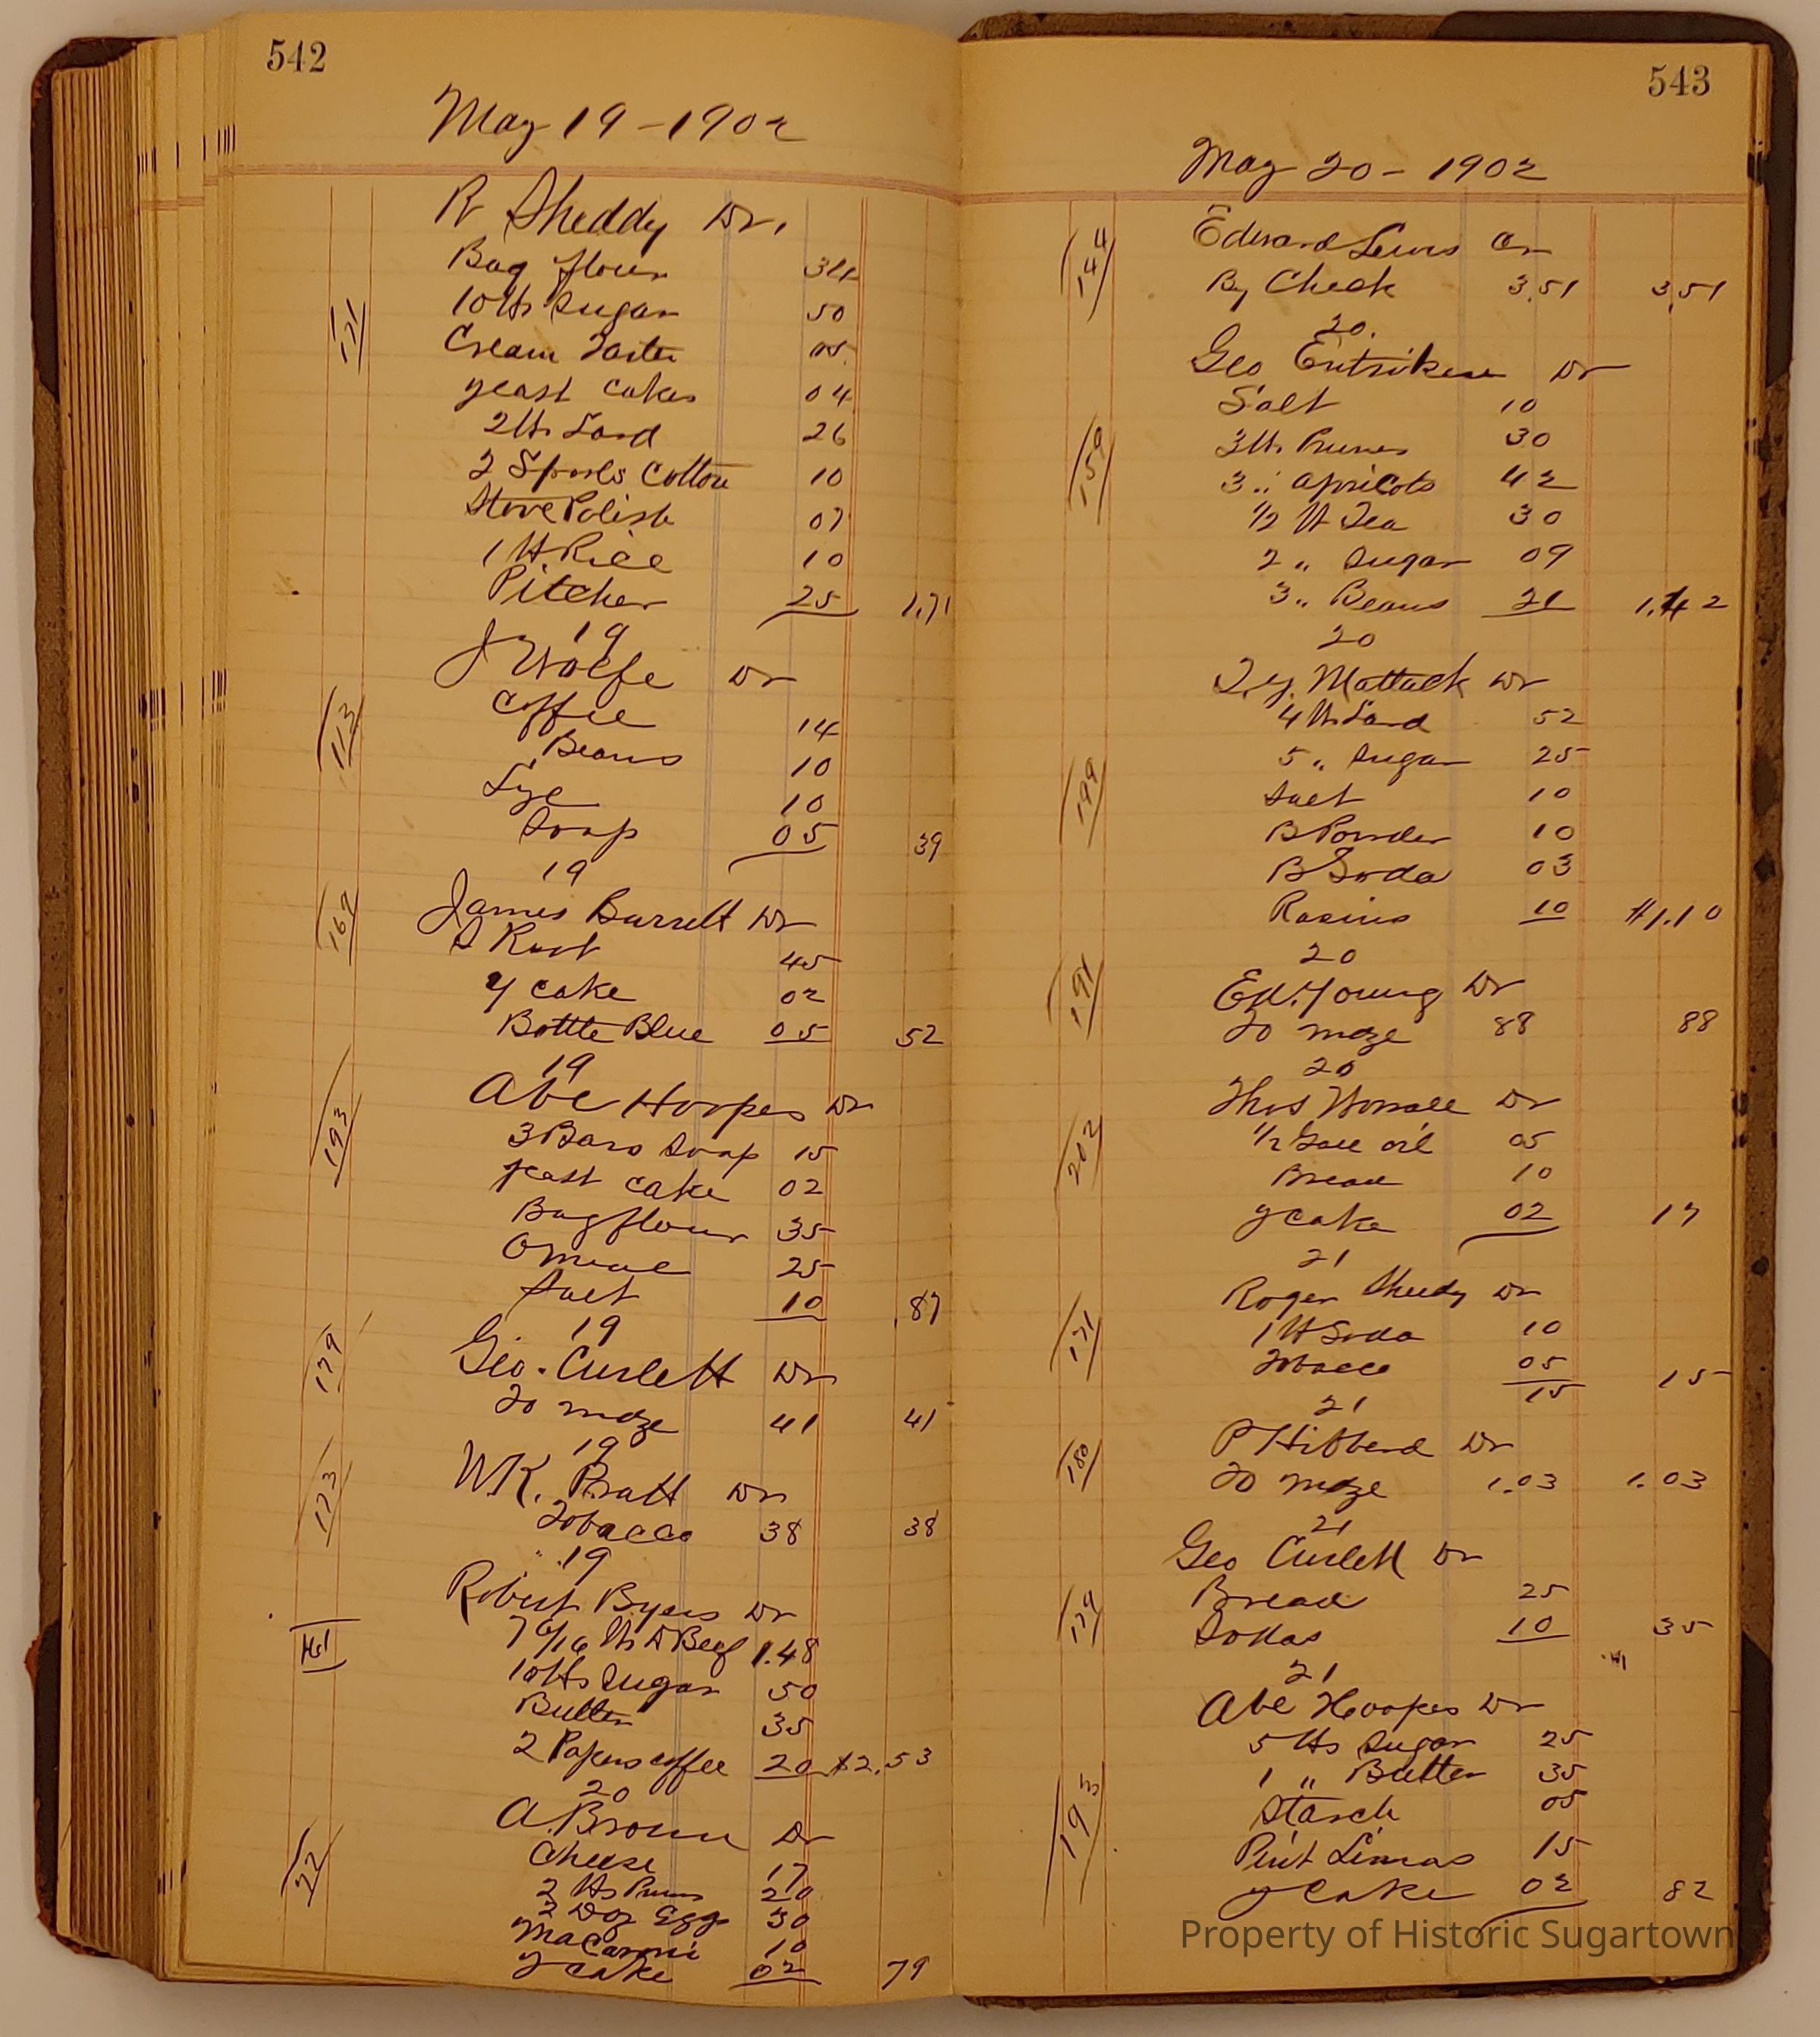 542
May 19 - 1902
R Sheddy Dr.
Bag flour 34
171
10 lbs Sugar 50
Cream Tarter 05
yeast cakes 04
2 lbs Lard 26
2 Spools Cotton 10
Stove Polish 07
1 lb Rice 10
Pitcher 25 1.71
19
J Wolfe Dr
113
Coffee 14
Beans 10
Lye 10
Soap 05 39
19
169
James Barrett Dr
45
y cake 02
Bottle Blue 05 52
19
Abe Hoopes Dr
193
3 Bars Soap 15
yeast cake 02
Bag flour 35
O meal 25
Salt 10 .87
19
179
Geo. Curlett Dr
To mdze 41 41
19
173
W.K. Pratt Dr
Tobacco 38 38
19
Robert Byers Dr
7 6/16 lbs D Beef 1.48
10 lbs Sugar 50
Butter 35
2 Papers coffee 20 $2.53
20
22
A. Brown Dr
Cheese 17
2 lbs Pruns 20
2 Doz Eggs 30
Macaroni 10
y cake 02 79
543
May 20 - 1902
144
Edward Lewis Cr
By Check 3.51 3.51
20.
Geo Entriken Dr
Salt 10
159
3 lb Prunes 30
3 " apricots 42
1/2 lb Tea 30
2 " Sugar 09
3 " Beans 21 1.42
20
Mattack Dr
4 lbs Lard 52
199
5 " Sugar 25
Salt 10
B Powder 10
B Soda 03
Rasins 10 $1.10
20
191
Ed. Young Dr
To mdze 88 88
20
202
Thos Worrall Dr
1/2 Gall oil 05
Bread 10
y cake 02 17
21
171
Roger Sheedy Dr
1 lb Soda 10
Tobacco 05 15
15
21
180
P Hibberd Dr
To mdze 1.03 1.03
21
Geo Curlett Dr
179
Bread 25
10 35
21
Abe Hoopes Dr
193
5 lbs Sugar 25
1 " Butter 35
Starch 05
Pint Limas 15
y cake 02 82
Property of Historic Sugartown